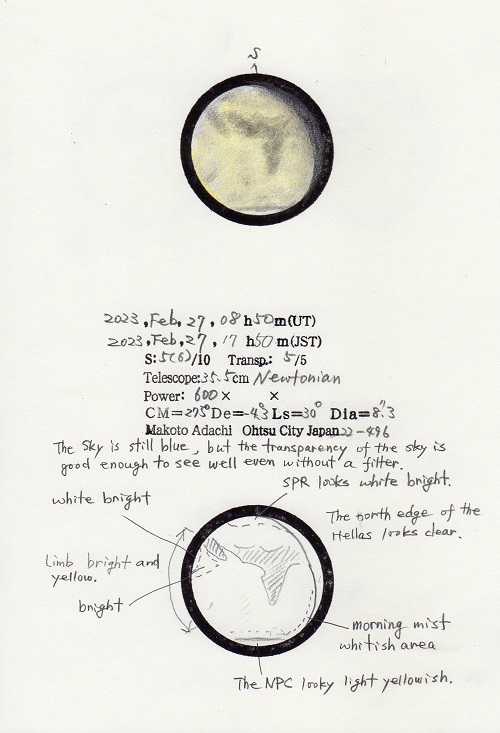 S
2023, Feb, 27, 08h50m(UT)
2023, Feb, 27, 17h50m(JST)
S: 5(6)/10 Transp.: 5/5
Telescope: 35.5cm Newtonian
Power: 600× ×
CM=275° De=-4.3° Ls=30° Dia=8."3
Makoto Adachi Ohtsu City Japan 22-496
The Sky is still blue, but the transparency of the sky is
good enough to see well even without a filter.
SPR looks white bright.
white bright
The north edge of the
Hellas looks clear.
Limb bright and
yellow.
bright
morning mist
whitish area
The NPC looky light yellowish.